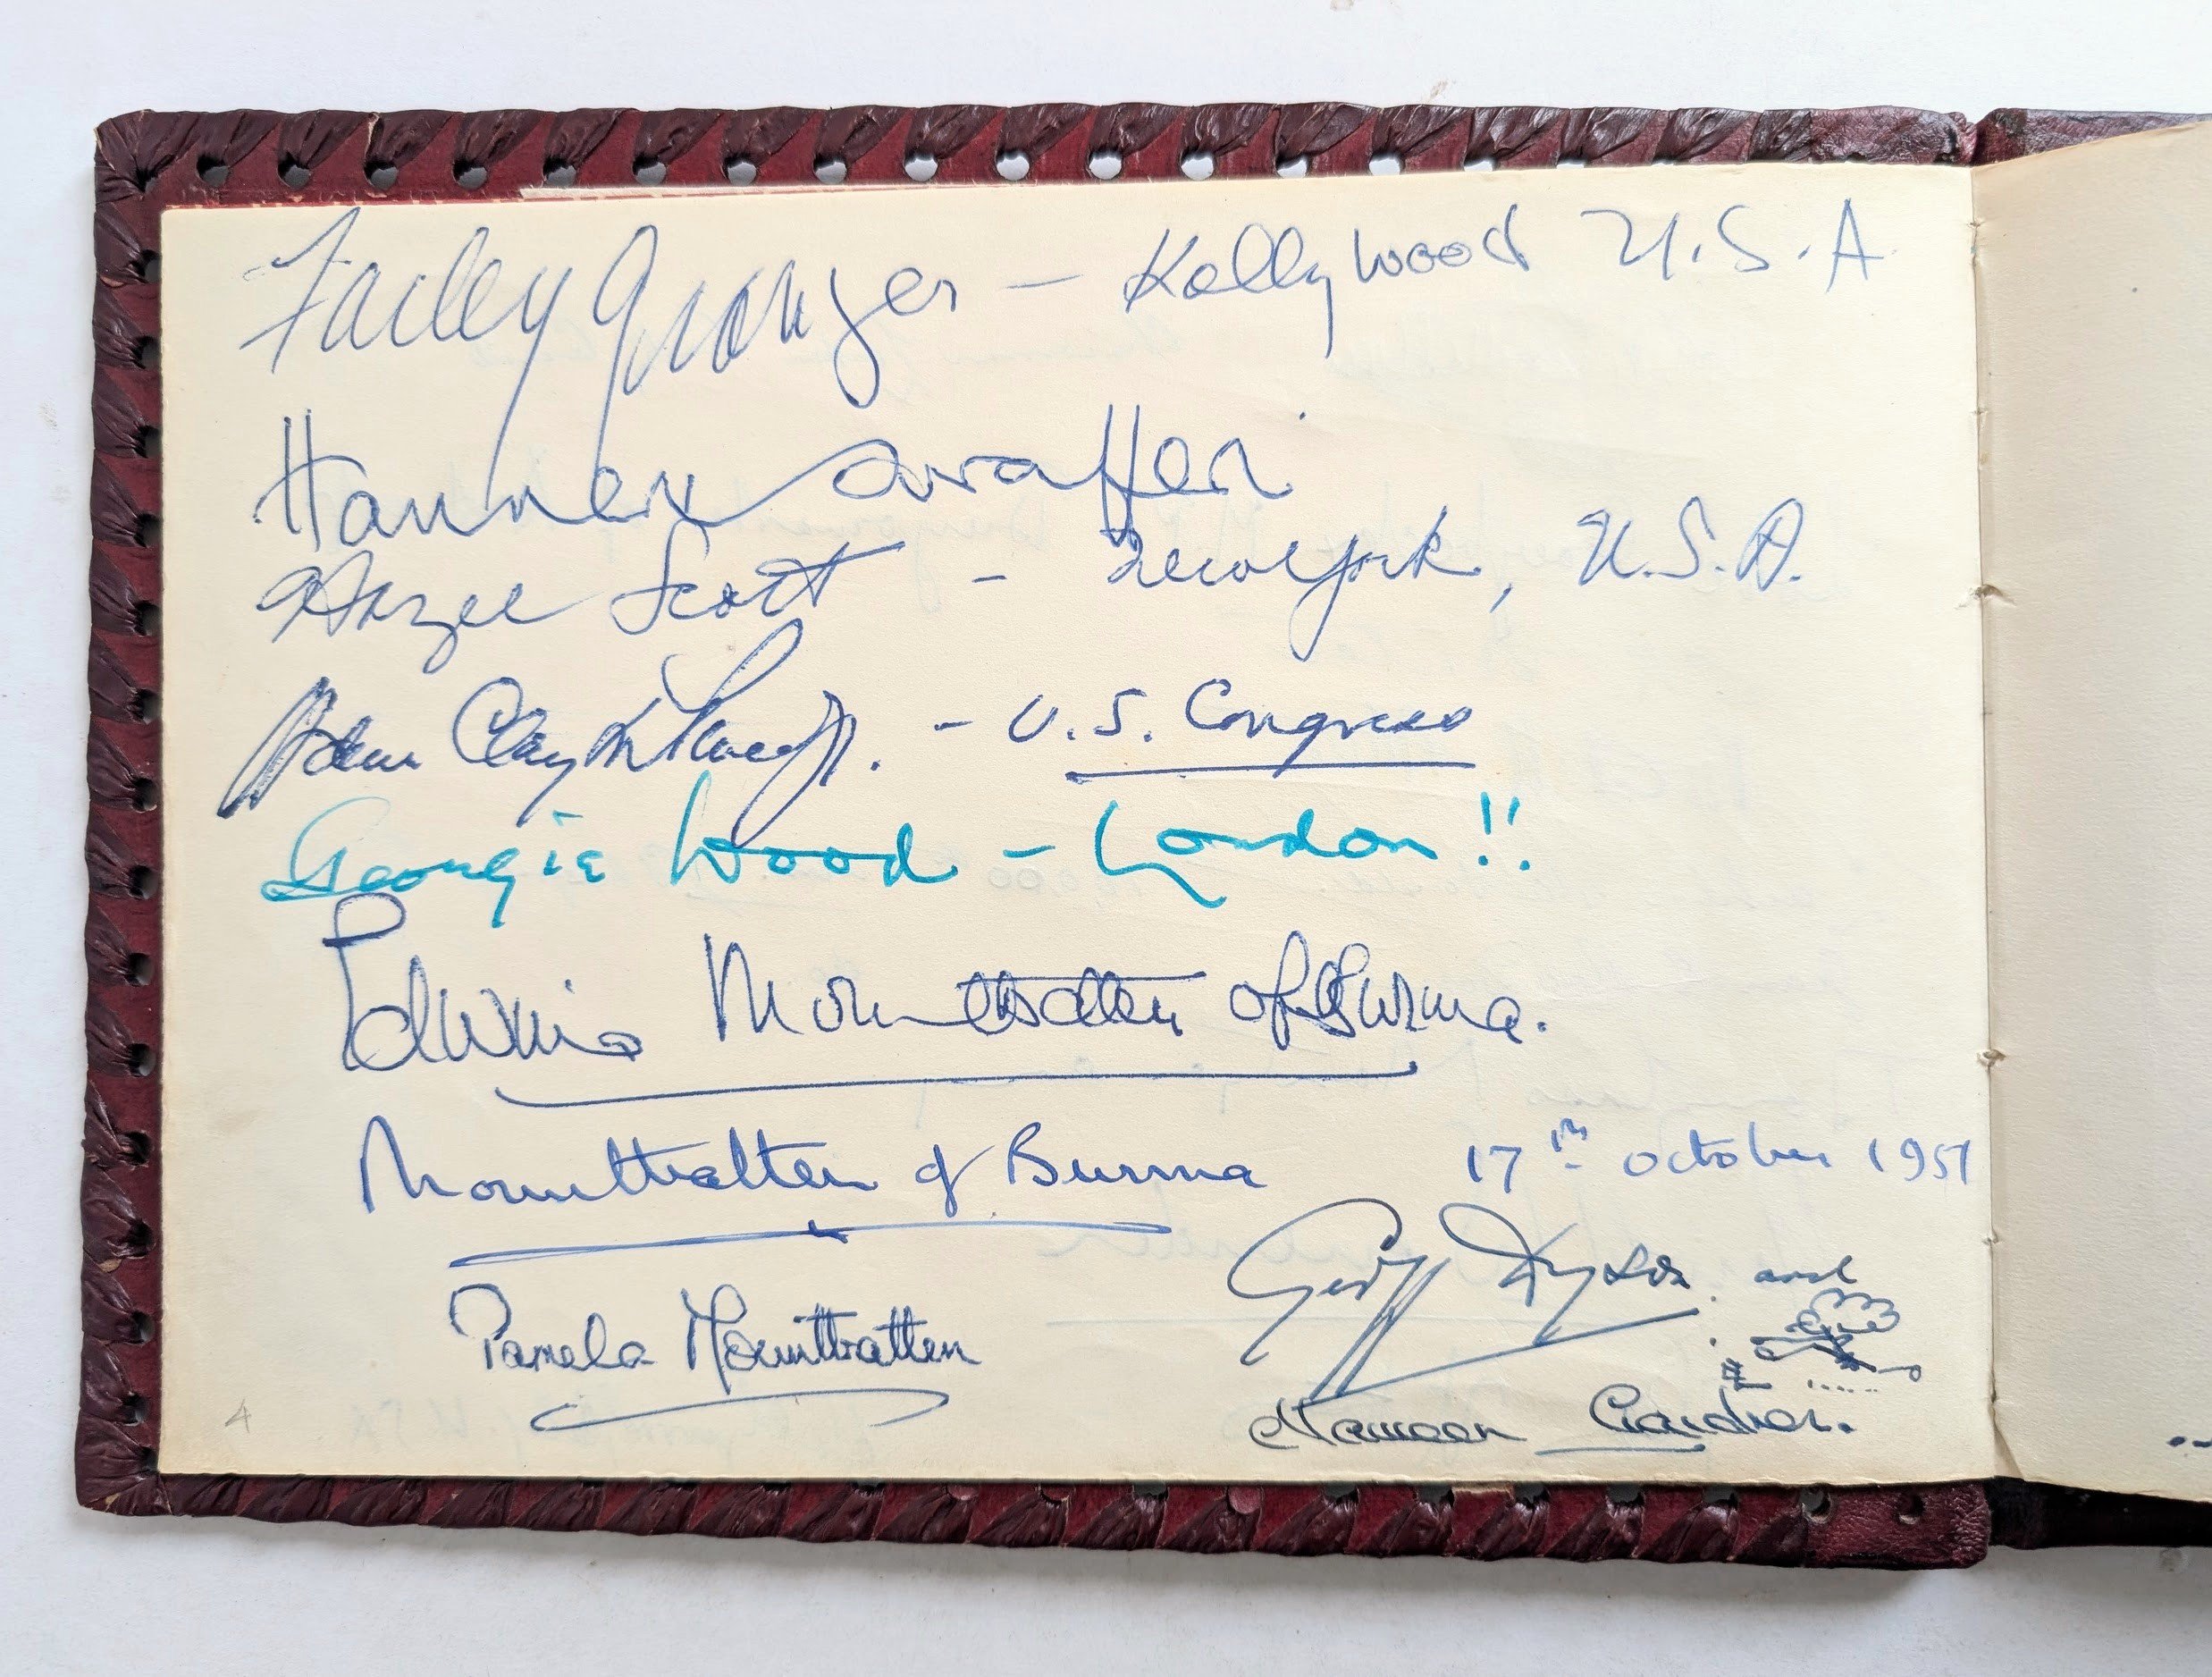 Farley Granger – Hollywood U.S.A
Hannen Swaffer
Hazel Scott – New York, U.S.A.
Adam Clayton Powell Jr. – U.S. Congress
Georgie Wood – London!!
Edwina Mountbatten of Burma.
Mountbatten of Burma 17th October 1951
Pamela Mountbatten
Geoff Dyson. and
Maureen Gardner.
4